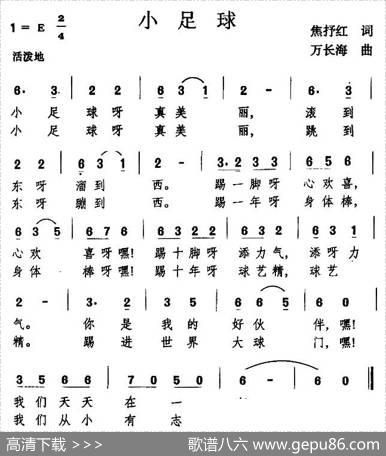 小足球
1=E 2/4
焦抒红 词
万长海 曲
活泼地
6· 3 | 2 2 | 6 3 1 | 2 - | 6· 3
小 足 球 呀 真 美 丽, 滚 到
小 足 球 呀 真 美 丽, 跳 到
2 2 | 6 3 1 | 2 - | 3·2 3 3 | 6 5 6
东 呀 溜 到 西。 踢 一 脚 呀 心 欢 喜,
东 呀 蹦 到 西。 踢 一 年 呀 身 体 棒,
6 3 5 | 6 7 6 | 3·2 3 3 | 6 3 1 | 2 1 3
心 欢 喜 呀 嘿! 踢 十 脚 呀 添 力 气, 添 呀 力
身 体 棒 呀 嘿! 踢 十 年 呀 球 艺 精, 球 艺
2 - | 3· 2 | 3 1 2 | 6 6 5 | 6 0
气。 你 是 我 的 好 伙 伴, 嘿!
精。 踢 进 世 界 大 球 门, 嘿!
3 5 6 6 | 7 0 5 0 | 6 - | 6 0
我 们 天 天 在 一
我 们 从 小 有 志
高清下载 >>> 歌谱八六 www.gepu86.com